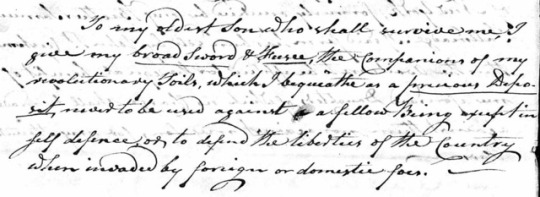 To my eldest Son who shall survive me, I
give my broad Sword & Fusee, the Companions of my
revolutionary Toils, which I bequeathe as a precious Depo-
sit, never to be used against a fellow Being except in
self defence, or, to defend the liberties of the Country
when invaded by foreign or domestic foes.